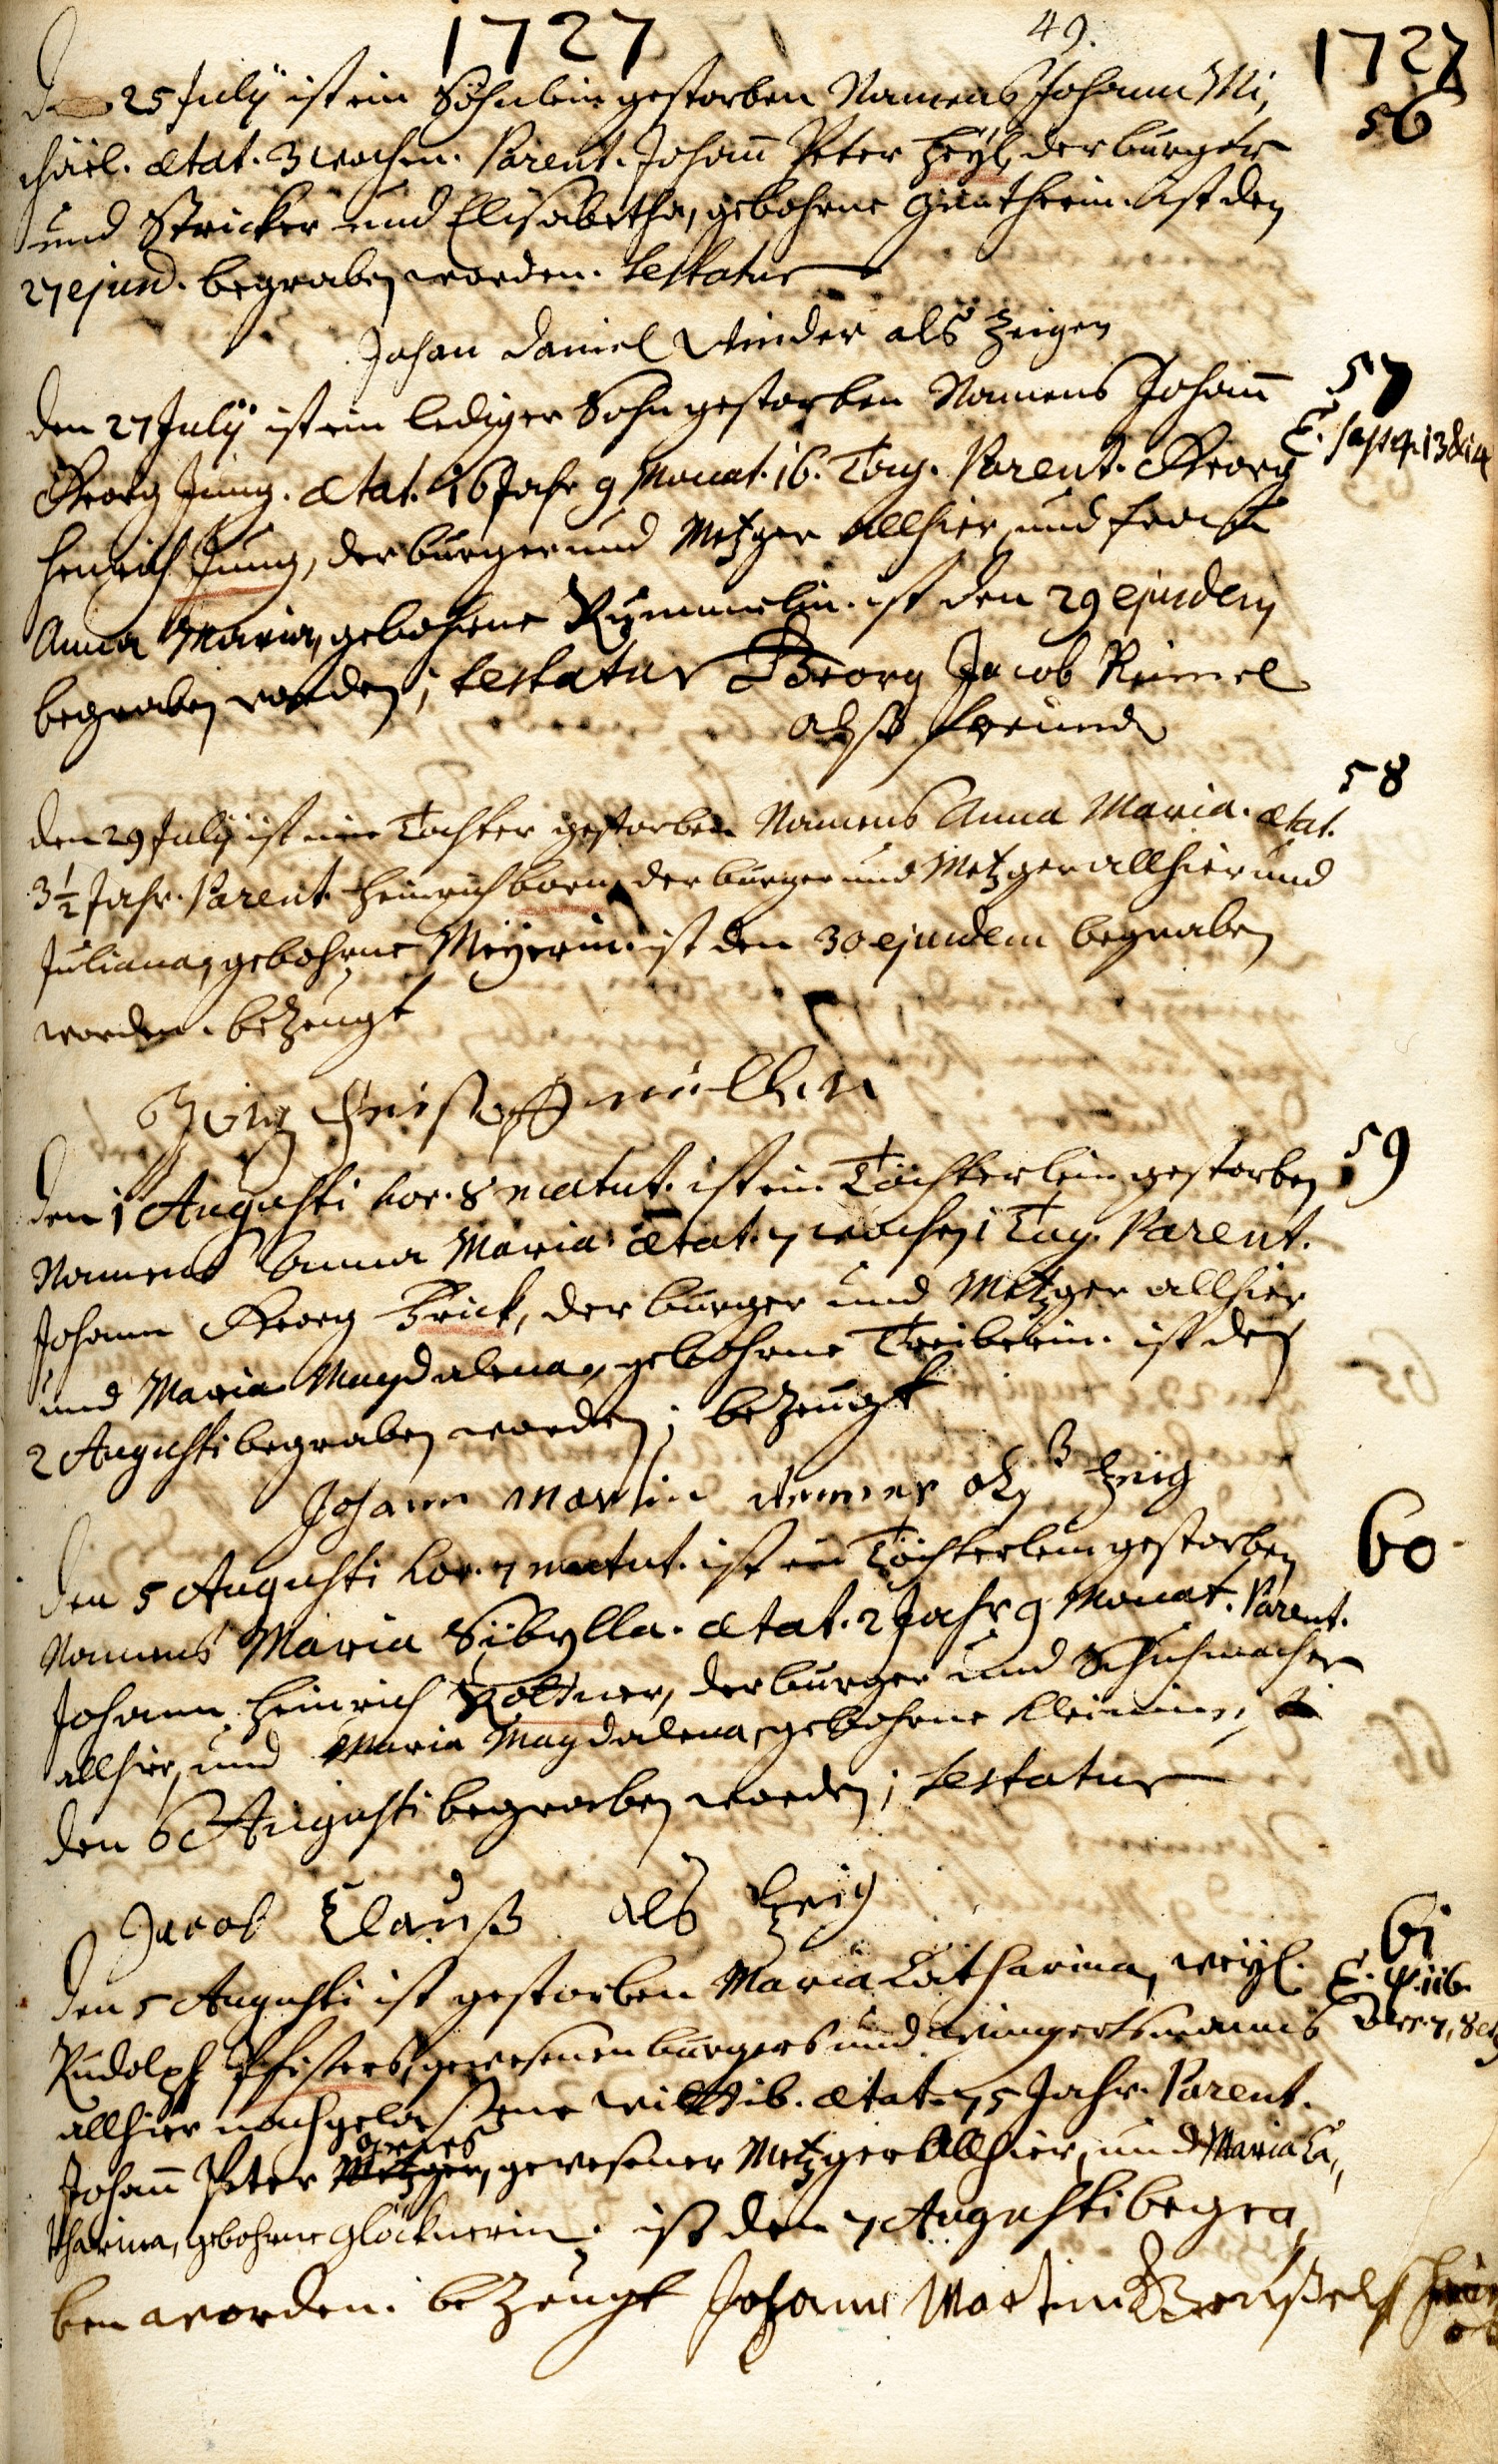 1727
49.
1727
56
Den 25 Julij ist ein Söhnlein gestorben Namens Johann Mi,
chael. ætat. 3 wochen. Parent. Johan̄ Peter Heyl, der burger
und Stricker und Elisabetha, gebohrne Guntherin. Ist den
27 ejusd. begraben worden. testatur
Johan Daniel Winder als Zeigen
57
E. Sap. 4. 13 & 14
den 27 Julij ist ein lediger Sohn gestorben Namens Johan̄
Georg Jung. ætat. 16 Jahr 9 Monat. 16. Tag. Parent. Georg
Henrich Jung, der burger und Metzger allhier, und
Anna Maria, gebohrne Rummelin. ist den 29 ejusdem
begraben worden; testatur Georg Jacob Rimel
alsß freund
58
den 29 Julij ist eine Tochter gestorben Namens Anna Maria. ætat.
3 1/2 Jahr. Parent. Heinrich born, der burger und Metzger allhier und
Juliana, gebohrne Meyerin. ist den 30 ejusdem begraben
worden. bezeugt
müller
59
den 1 Augusti hor. 8 matut. ist ein Töchterlein gestorben
Namens Anna Maria. ætat. 7 wochen 1 Tag. Parent.
Johann Georg Frick, der burger und Metzger allhier
und Maria Magdalena, gebohrne Treiberin. ist den
2 Augusti begraben worden; bezeugt
Johann Martin als Zeig
60
den 5 Augusti hor. 7 matut. ist ein Töchterlein gestorben
Namens Maria Sibylla. ætat. 2 Jahr 9 Monat. Parent.
Johann Heinrich Roltner, der burger und Schuhmacher
allhier, und Maria Magdalena, gebohrne Kleinin, ist
den 6 Augusti begraben worden; testatur
Jacob Clauß als Zeig
61
E. ψ. 116.
Vers. 7, 8
den 5 Augusti ist gestorben Maria Catharina, weyl.
Rudolph Pfisters, gewesenen burgers und wingertsmanns
allhier nachgelaßene wittib. ætat. 75 Jahr. Parent.
Johan̄ Peter Metzger, gewesener Metzger allhier, und Maria Ca,,
tharina, gebohrne Glöcknerin. ist den 7 Augusti begra,
ben worden. bezeugt Johann Martin